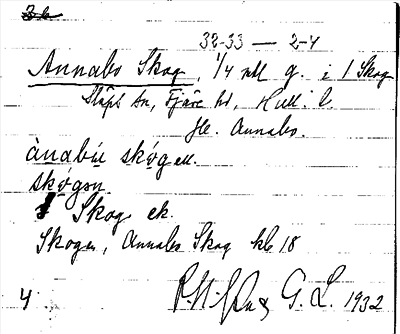 32-33 — 2-4
Annabo Skog, 1/4 mtl g. i 1 Skog
Släps sn, Fjäre hd, Hall. l.
Jfr. Annabo.
ànabú skóg ell.
skógen.
1 Skog ek.
Skogen, Annabo Skog kb 18
G. L. 1932
4